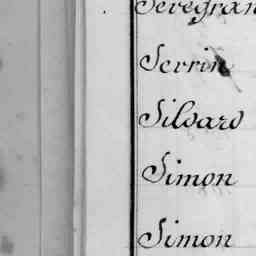 Serrin
Silvard
Simon
Simon